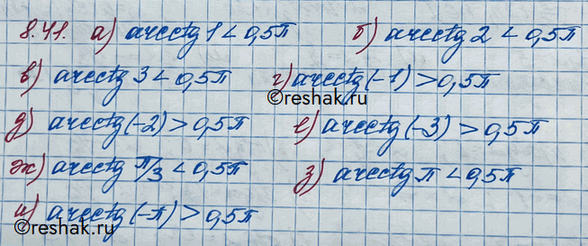 8.41. а) arcctg 1 < 0,5π б) arcctg 2 < 0,5π
в) arcctg 3 < 0,5π г) arcctg(-1) > 0,5π
©reshak.ru
д) arcctg(-2) > 0,5π е) arcctg(-3) > 0,5π
ж) arcctg π/3 < 0,5π з) arcctg π < 0,5π
и) arcctg(-π) > 0,5π
©reshak.ru